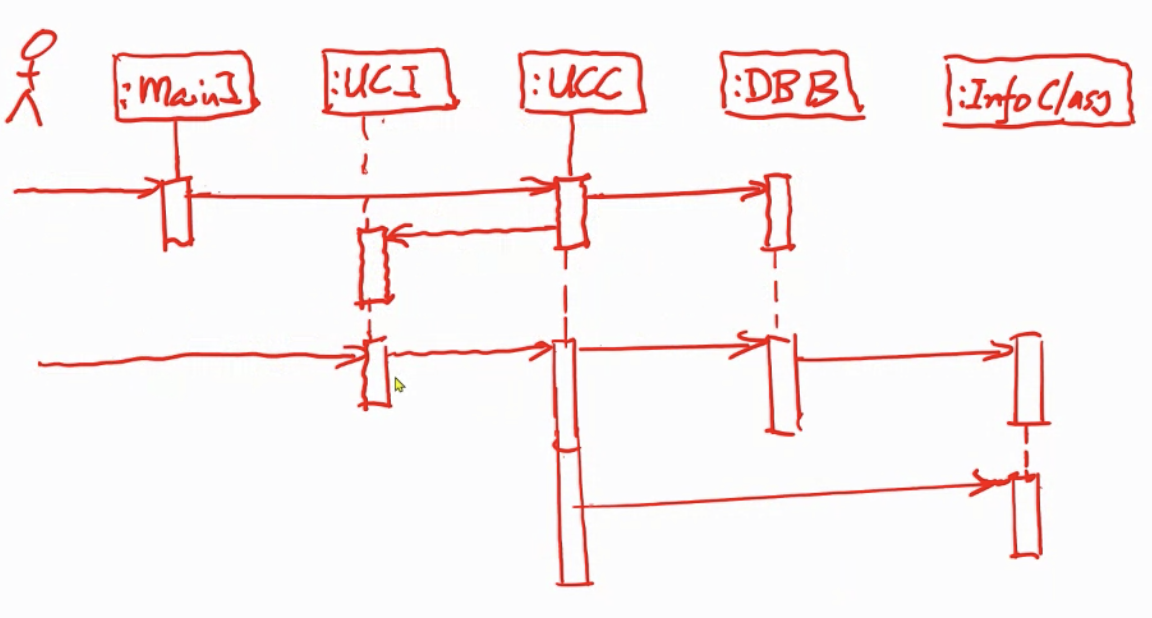 :MainI
:UCI
:UCC
:DBB
:InfoClass